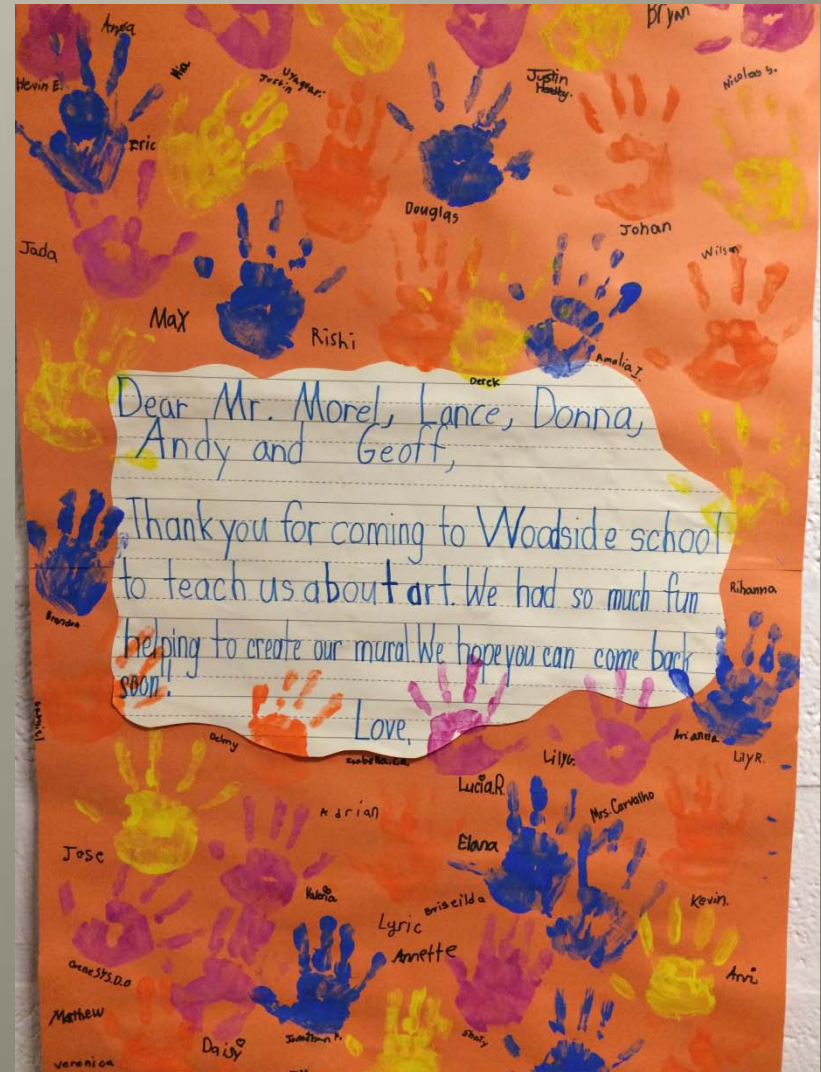 Bryan
Anea
Kevin E.
Mia
Justin
Justin
Nicolas S.
Eric
Douglas
Johan
Jada
Wilson
Max
Rishi
Amelia I.
Derek
Dear Mr. Morel, Lance, Donna,
Andy and Geoff,
Thank you for coming to Woodside school
to teach us about art. We had so much fun
helping to create our mural. We hope you can come back
soon!!
Love,
Rihanna
Brandon
Delmy
Isabella.
Lily G.
Arianna
Lily R.
Lucia.R
Mrs. Carvalho
Adrian
Elana
Jose
Valeria
Briseilda
Kevin.
Lyric
Annette
Genesys.D.O
Arvi
Mathew
Daisy
Jonathan P.
Shaly
Veronica